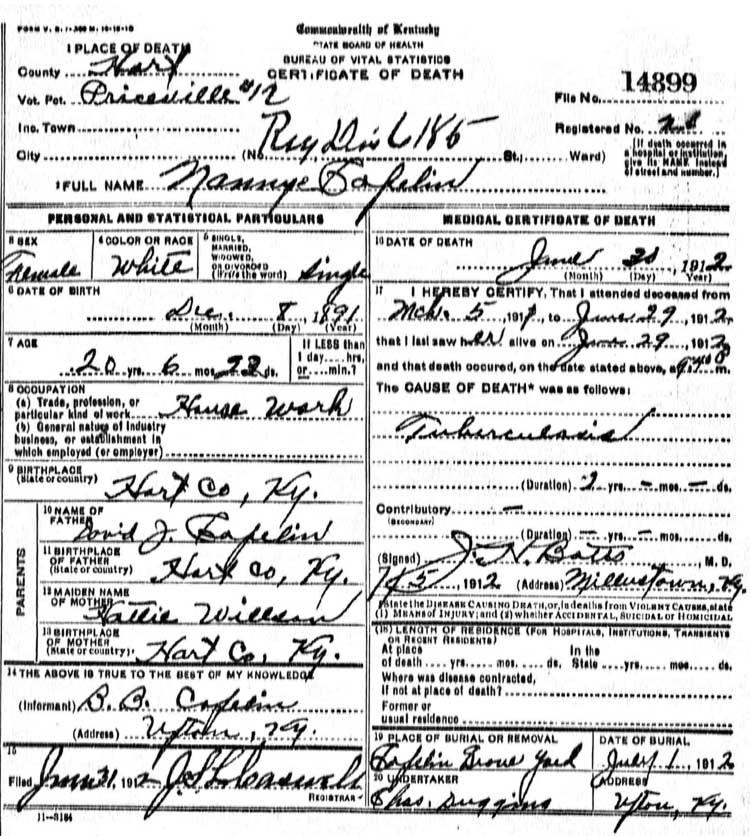 FORM V. S. 1-
Commonwealth of Kentucky
STATE BOARD OF HEALTH
BUREAU OF VITAL STATISTICS
CERTIFICATE OF DEATH
1 PLACE OF DEATH
County Hart
Vot. Pct. Priceville #12
Inc. Town
City (No. Reg Dis 6185 St.; Ward)
14899
File No.
Registered No.
[If death occurred in a hospital or institution, give its NAME instead of street and number.]
2 FULL NAME Nannye
PERSONAL AND STATISTICAL PARTICULARS
3 SEX Female
4 COLOR OR RACE White
5 SINGLE, MARRIED, WIDOWED, OR DIVORCED (Write the word) Single
6 DATE OF BIRTH
Dec. 8, 1891
(Month) (Day) (Year)
7 AGE
20 yrs. 6 mos. 22 ds.
If LESS than 1 day....hrs. or....min.?
8 OCCUPATION
(a) Trade, profession, or particular kind of work House Work
(b) General nature of Industry business, or establishment in which employed (or employer)
9 BIRTHPLACE
(State or country) Hart Co, Ky.
PARENTS
10 NAME OF FATHER David J.
11 BIRTHPLACE OF FATHER (State or country) Hart Co, Ky.
12 MAIDEN NAME OF MOTHER Hattie
13 BIRTHPLACE OF MOTHER (State or country) Hart Co, Ky.
14 THE ABOVE IS TRUE TO THE BEST OF MY KNOWLEDGE
(Informant) B. B.
(Address) Upton, Ky.
15
Filed 191 2
REGISTRAR
11-3184
MEDICAL CERTIFICATE OF DEATH
16 DATE OF DEATH
June 30, 1912
(Month) (Day) (Year)
17 I HEREBY CERTIFY, That I attended deceased from
Mch. 5, 191 , to June 29, 1912
that I last saw her alive on June 29, 1912
and that death occured, on the date stated above, at m.
The CAUSE OF DEATH* was as follows:
Tuberculosis
(Duration) 2 yrs. – mos. – ds.
Contributory –
(SECONDARY)
(Duration) – yrs. – mos. – ds.
(Signed) J. H. Batts, M. D.
7/5, 1912 (Address) Millerstown, Ky.
*State the DISEASE CAUSING DEATH, or, in deaths from VIOLENT CAUSES, state (1) MEANS OF INJURY; and (2) whether ACCIDENTAL, SUICIDAL OR HOMICIDAL
(18) LENGTH OF RESIDENCE (FOR HOSPITALS, INSTITUTIONS, TRANSIENTS OR RECENT RESIDENTS)
At place of death .... yrs. .... mos. .... ds. In the State .... yrs. .... mos. .... ds.
Where was disease contracted, If not at place of death?
Former or usual residence
19 PLACE OF BURIAL OR REMOVAL
Grove Yard
DATE OF BURIAL
July 1, 1912
20 UNDERTAKER
Chas.
ADDRESS
Upton, Ky.